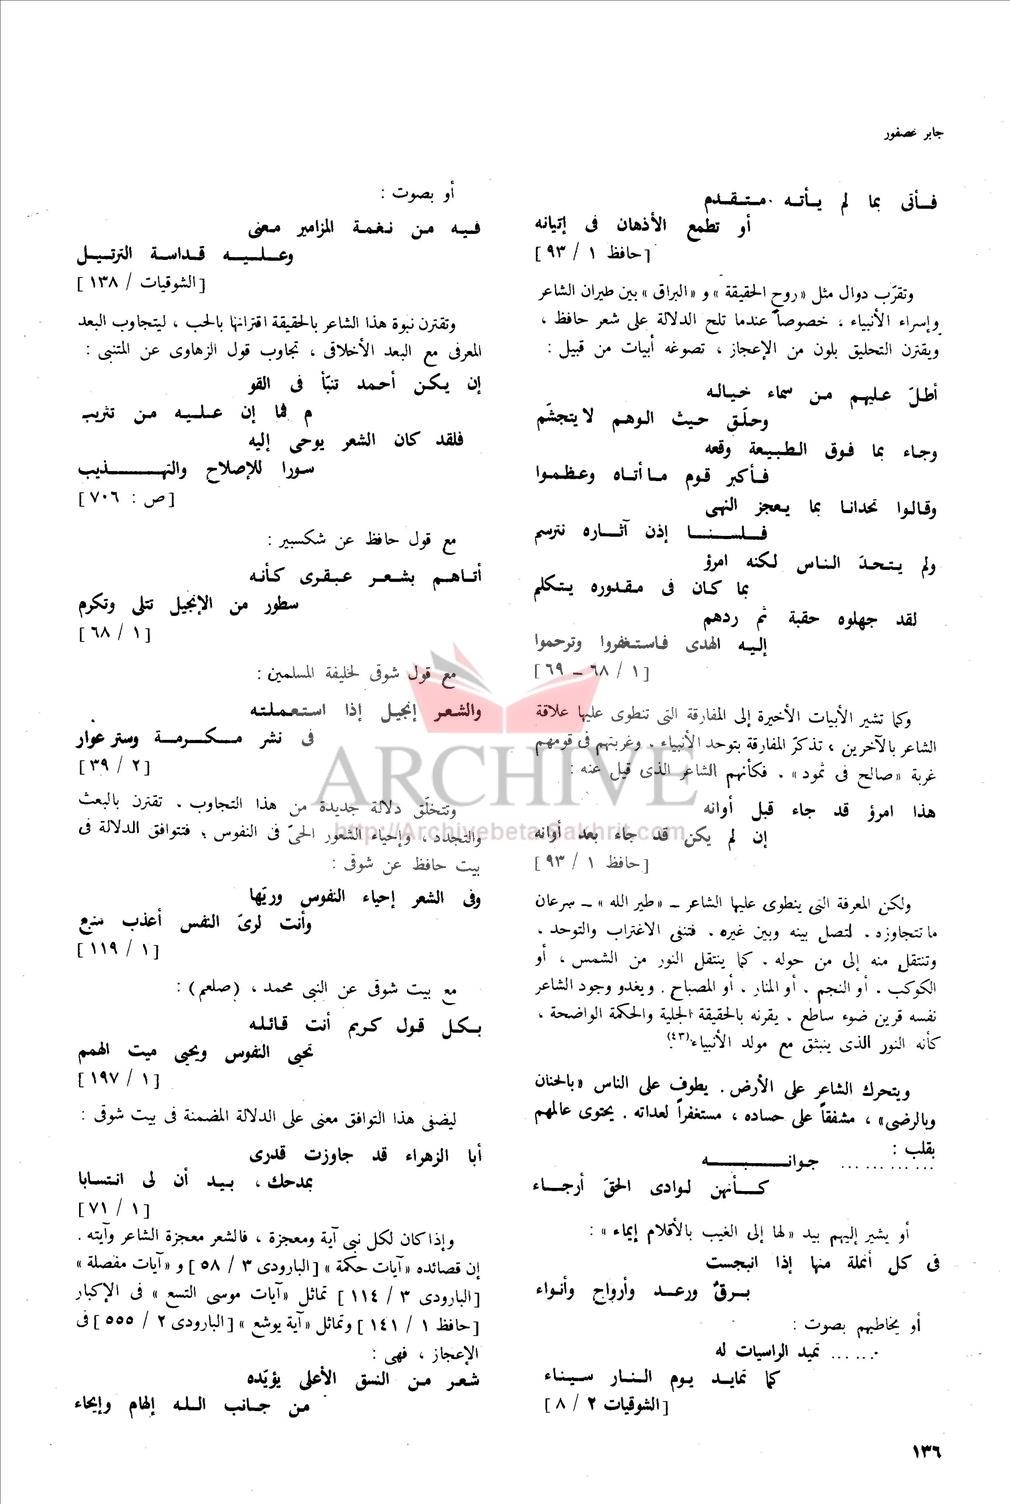 جابر عصفور
فـأتى بما لم يـأته متـقدم
أو تطمع الأذهان فى إتيانه
[حافظ ١ / ٩٣]
وتقرّب دوال مثل «روح الحقيقة» و «البراق» بين طيران الشاعر
وإسراء الأنبياء ، خصوصاً عندما تلح الدلالة على شعر حافظ ،
ويقترن التحليق بلون من الإعجاز ، تصوغه أبيات من قبيل :
أطلّ عليهم من سماء خياله
وحلّق حيث الوهم لا يتجشّم
وجاء بما فوق الطبيعة وقعه
فأكبر قوم ما أتاه وعظموا
وقالوا تحدانا بما يعجز النهى
فلسنا إذن آثاره نترسم
ولم يتحدّ الناس لكنه امرؤ
بما كان فى مقدوره يتكلم
لقد جهلوه حقبة ثم ردهم
إليه الهدى فاستغفروا وترحموا
[١ / ٦٨ – ٦٩]
وكما تشير الأبيات الأخيرة إلى المفارقة التى تنطوى عليها علاقة
الشاعر بالآخرين ، تذكرّ المفارقة بتوحد الأنبياء . وغربتهم فى قومهم
غربة «صالح فى ثمود» . فكأنهم الشاعر الذى قيل عنه :
هذا امرؤ قد جاء قبل أوانه
إن لم يكن قد جاء بعد أوانه
[حافظ ١ / ٩٣]
ولكن المعرفة التى ينطوى عليها الشاعر – «طير الله» – سرعان
ما تتجاوزه . لتصل بينه وبين غيره . فتنفى الاغتراب والتوحد .
وتنتقل منه إلى من حوله . كما ينتقل النور من الشمس ، أو
الكوكب . أو النجم . أو المنار . أو المصباح . ويغدو وجود الشاعر
نفسه قرين ضوء ساطع . يقرنه بالحقيقة الجلية والحكمة الواضحة ،
كأنه النور الذى ينبثق مع مولد الأنبياء(٤٣).
ويتحرك الشاعر على الأرض . يطوف على الناس «بالحنان
وبالرضى» ، مشفقاً على حساده ، مستغفراً لعداته . يحتوى عالمهم
بقلب :
............ جوانـبـه
كـأنهن لوادى الحقّ أرجـاء
أو يشير إليهم بيد «لها إلى الغيب بالأقلام إيماء» :
فى كل أنملة منها إذا انبجست
برقٌ ورعد وأرواح وأنواء
أو يخاطبهم بصوت :
...... تميد الراسيات له
كما تمايد يوم النار سيناء
[الشوقيات ٢ / ٨]
أو بصوت :
فيه من نغمة المزامير معنى
وعـلـيـه قداسة الترتيـل
[الشوقيات / ١٣٨]
وتقترن نبوة هذا الشاعر بالحقيقة اقترانها بالحب ، ليتجاوب البعد
المعرفى مع البعد الأخلاقى ، تجاوب قول الزهاوى عن المتنبى :
إن يكن أحمد تنبّأ فى القو
م فما إن عليه من تثريب
فلقد كان الشعر يوحى إليه
سورا للإصلاح والتهـذيب
[ص : ٧٠٦]
مع قول حافظ عن شكسبير :
أتاهم بشعر عبقرى كأنه
سطور من الإنجيل تتلى وتكرم
[١ / ٦٨]
مع قول شوقى لخليفة المسلمين :
والشعر إنجيل إذا استعملته
فى نشر مكرمة وستر عوار
[٢ / ٣٩]
وتتخلّق دلالة جديدة من هذا التجاوب . تقترن بالبعث
والتجدد ، وإحياء الشعور الحىّ فى النفوس ؛ فتتوافق الدلالة فى
بيت حافظ عن شوقى :
وفى الشعر إحياء النفوس وريّها
وأنت لرىّ النفس أعذب منبع
[١ / ١١٩]
مع بيت شوقى عن النبى محمد ، (صلعم) :
بـكل قول كريم أنت قائله
تحيى النفوس ويحيى ميت الهمم
[١ / ١٩٧]
ليضفى هذا التوافق معنى على الدلالة المضمنة فى بيت شوقى :
أبا الزهراء قد جاوزت قدرى
بمدحك ، بيد أن لى انتسابا
[١ / ٧١]
وإذا كان لكل نبى آية ومعجزة ، فالشعر معجزة الشاعر وآيته .
إن قصائده «آيات حكمة» [البارودى ٣ / ٥٨] و «آيات مفصلة»
[البارودى ٣ / ١١٤] تماثل «آيات موسى التسع» فى الإكبار
[حافظ ١ / ١٤١] وتماثل «آية يوشع» [البارودى ٢ / ٥٥٥] فى
الإعجاز ، فهى :
شعر من النسق الأعلى يؤيّده
من جانب اللـه إلهام وإيحاء
١٣٦
ARCHIVE
http://Archivebeta.Sakhrit.com